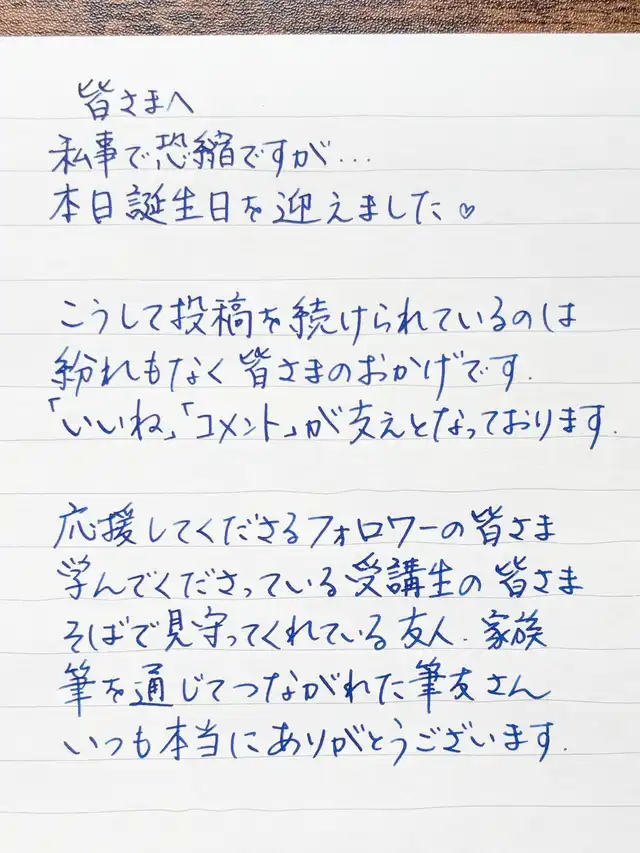 皆さまへ
私事で恐縮ですが...
本日誕生日を迎えました♡
こうして投稿を続けられているのは
紛れもなく皆さまのおかげです.
「いいね」「コメント」が支えとなっております.
応援してくださるフォロワーの皆さま
学んでくださっている受講生の皆さま
そばで見守ってくれている友人.家族
筆を通じてつながれた筆友さん
いつも本当にありがとうございます.